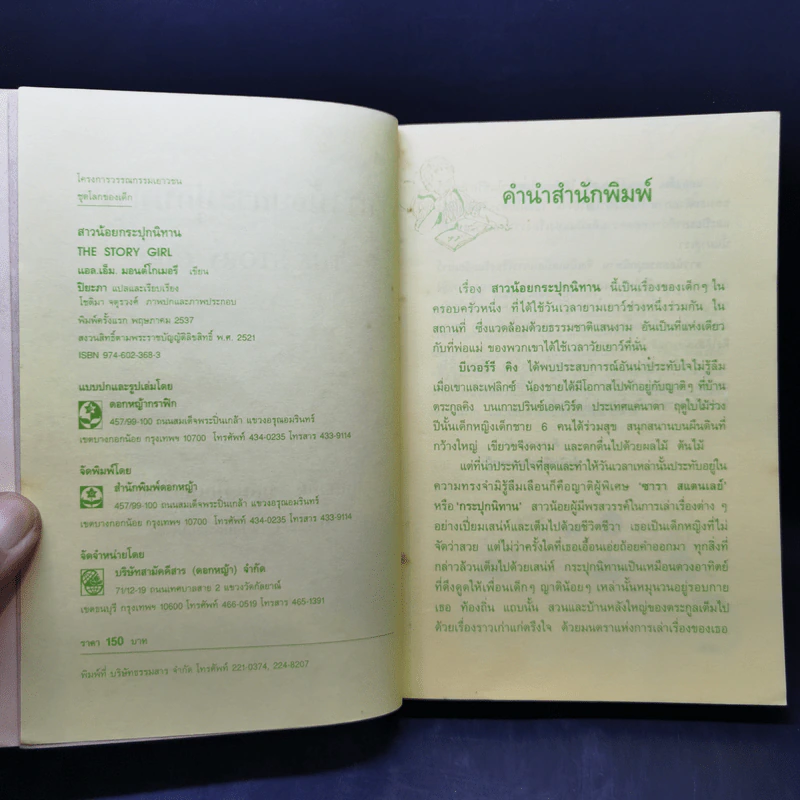 โครงการวรรณกรรมเยาวชน
ชุดโลกของเด็ก
สาวน้อยกระปุกนิทาน
THE STORY GIRL
แอล.เอ็ม. มอนต์โกเมอรี เขียน
ปิยะภา แปลและเรียบเรียง
โชติมา จตุรวงค์ ภาพปกและภาพประกอบ
พิมพ์ครั้งแรก พฤษภาคม 2537
สงวนสิทธิ์ตามพระราชบัญญัติลิขสิทธิ์ พ.ศ. 2521
ISBN 974-602-368-3
แบบปกและรูปเล่มโดย
ดอกหญ้ากราฟิก
457/99-100 ถนนสมเด็จพระปิ่นเกล้า แขวงอรุณอมรินทร์
เขตบางกอกน้อย กรุงเทพฯ 10700 โทรศัพท์ 434-0235 โทรสาร 433-9114
จัดพิมพ์โดย
สำนักพิมพ์ดอกหญ้า
457/99-100 ถนนสมเด็จพระปิ่นเกล้า แขวงอรุณอมรินทร์
เขตบางกอกน้อย กรุงเทพฯ 10700 โทรศัพท์ 434-0235 โทรสาร 433-9114
จัดจำหน่ายโดย
บริษัทสามัคคีสาร (ดอกหญ้า) จำกัด
71/12-19 ถนนเทศบาลสาย 2 แขวงวัดกัลยาณ์
เขตธนบุรี กรุงเทพฯ 10600 โทรศัพท์ 466-0519 โทรสาร 465-1391
ราคา 150 บาท
พิมพ์ที่ บริษัทธรรมสาร จำกัด โทรศัพท์ 221-0374, 224-8207
คำนำสำนักพิมพ์
เรื่อง สาวน้อยกระปุกนิทาน นี้เป็นเรื่องของเด็กๆ ใน
ครอบครัวหนึ่ง ที่ได้ใช้วันเวลายามเยาว์ช่วงหนึ่งร่วมกัน ใน
สถานที่ ซึ่งแวดล้อมด้วยธรรมชาติแสนงาม อันเป็นที่แห่งเดียว
กับที่พ่อแม่ ของพวกเขาได้ใช้เวลาวัยเยาว์ที่นั่น
บีเวอร์รี คิง ได้พบประสบการณ์อันน่าประทับใจไม่รู้ลืม
เมื่อเขาและเฟลิกซ์ น้องชายได้มีโอกาสไปพักอยู่กับญาติๆ ที่บ้าน
ตระกูลคิง บนเกาะปรินซ์เอดเวิร์ด ประเทศแคนาดา ฤดูใบไม้ร่วง
ปีนั้นเด็กหญิงเด็กชาย 6 คนได้ร่วมสุข สนุกสนานบนผืนดินที่
กว้างใหญ่ เขียวขจีงดงาม และดกดื่นไปด้วยผลไม้ ต้นไม้
แต่ที่น่าประทับใจที่สุดและทำให้วันเวลาเหล่านั้นประทับอยู่ใน
ความทรงจำมิรู้ลืมเลือนก็คือญาติผู้พิเศษ 'ซารา สแตนเลย์'
หรือ 'กระปุกนิทาน' สาวน้อยผู้มีพรสวรรค์ในการเล่าเรื่องต่าง ๆ
อย่างเปี่ยมเสน่ห์และเต็มไปด้วยชีวิตชีวา เธอเป็นเด็กหญิงที่ไม่
จัดว่าสวย แต่ไม่ว่าครั้งใดที่เธอเอื้อนเอ่ยถ้อยคำออกมา ทุกสิ่งที่
กล่าวล้วนเต็มไปด้วยเสน่ห์ กระปุกนิทานเป็นเหมือนดวงอาทิตย์
ที่ดึงดูดให้เพื่อนเด็กๆ ญาติน้อยๆ เหล่านั้นหมุนวนอยู่รอบกาย
เธอ ท้องถิ่น แถบนั้น สวนและบ้านหลังใหญ่ของตระกูลเต็มไป
ด้วยเรื่องราวเก่าแก่ตรึงใจ ด้วยมนตราแห่งการเล่าเรื่องของเธอ